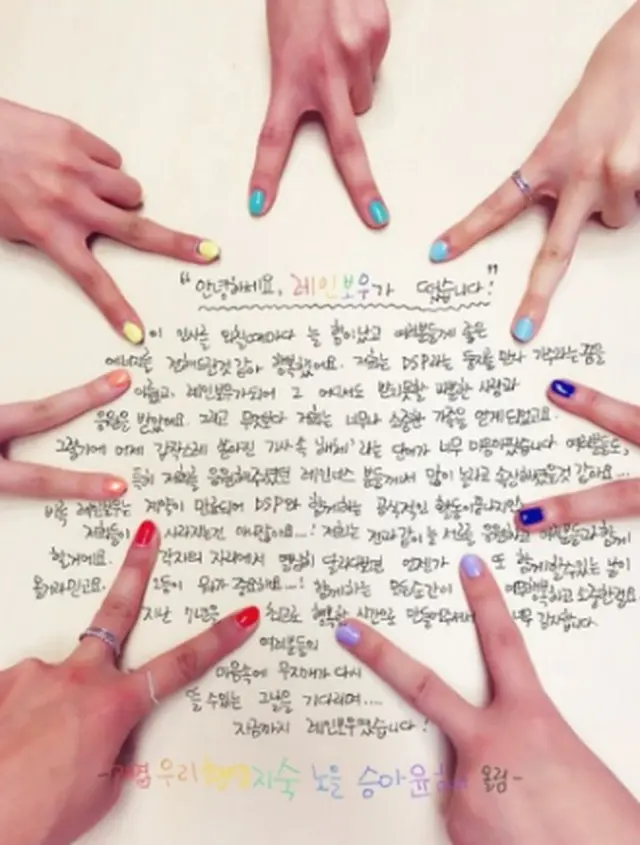 "안녕하세요, 레인보우가 떴습니다!"
이 인사를 외칠때마다 늘 힘이났고 여러분들께 좋은
에너지를 전해드린것 같아 행복했어요. 저희는 DSP라는 둥지를 만나 가수라는 꿈을
이뤘고, 레인보우가되어 그 어디서도 받지못할 따뜻한 사랑과
응원을 받았어요. 그리고 무엇보다 저희는 너무나 소중한 가족을 얻게 되었고요.
그렇기에 어제 갑작스레 쏟아진 기사 속 '해체' 라는 단어가 너무 마음아팠습니다 여러분들도,
특히 저희를 응원해주셨던 레인너스 분들께서 많이 놀라고 속상해하셨을것 같아요...
비록 레인보우는 계약이 만료되어 DSP와 함께하는 공식적인 활동이 끝나지만
저희들이 사라지는건 아니잖아요...! 저희는 전과 같이 늘 서로를 응원하고 여러분들과 함께
할거에요. 각자의 자리에서 열심히 달리다보면 언젠가 또 함께 할수있는 날이
올거라 믿고요. 1등이 뭐가 중요해요...! 함께하는 모든순간이 행복하고 소중한걸요.
지난 7년을 최고로 행복한 시간으로 만들어주셔서 너무 감사합니다.
여러분들의
마음속에 무지개가 다시
뜰 수 있는 그날을 기다리며....
지금까지 레인보우였습니다!
우리 지숙 노을 승아 윤혜 올림-